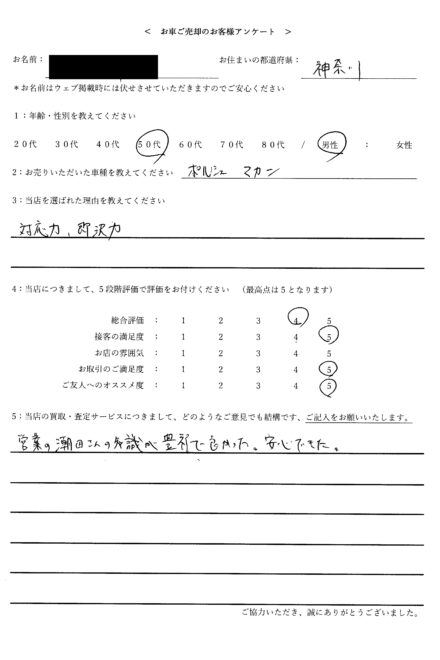 < お車ご売却のお客様アンケート >
お名前： お住まいの都道府県： 神奈川
＊お名前はウェブ掲載時には伏せさせていただきますのでご安心ください
１：年齢・性別を教えてください
２０代 ３０代 ４０代 ５０代 ６０代 ７０代 ８０代 / 男性 ： 女性
２：お売りいただいた車種を教えてください ポルシェ マカン
３：当店を選ばれた理由を教えてください
対応力、即決力
４：当店につきまして、５段階評価で評価をお付けください （最高点は５となります）
総合評価 ： 1 2 3 4 5
接客の満足度 ： 1 2 3 4 5
お店の雰囲気 ： 1 2 3 4 5
お取引のご満足度 ： 1 2 3 4 5
ご友人へのオススメ度 ： 1 2 3 4 5
５：当店の買取・査定サービスにつきまして、どのようなご意見でも結構です、ご記入をお願いいたします。
営業の潮田さんの知識が豊富で良かった。安心できた。
ご協力いただき、誠にありがとうございました。